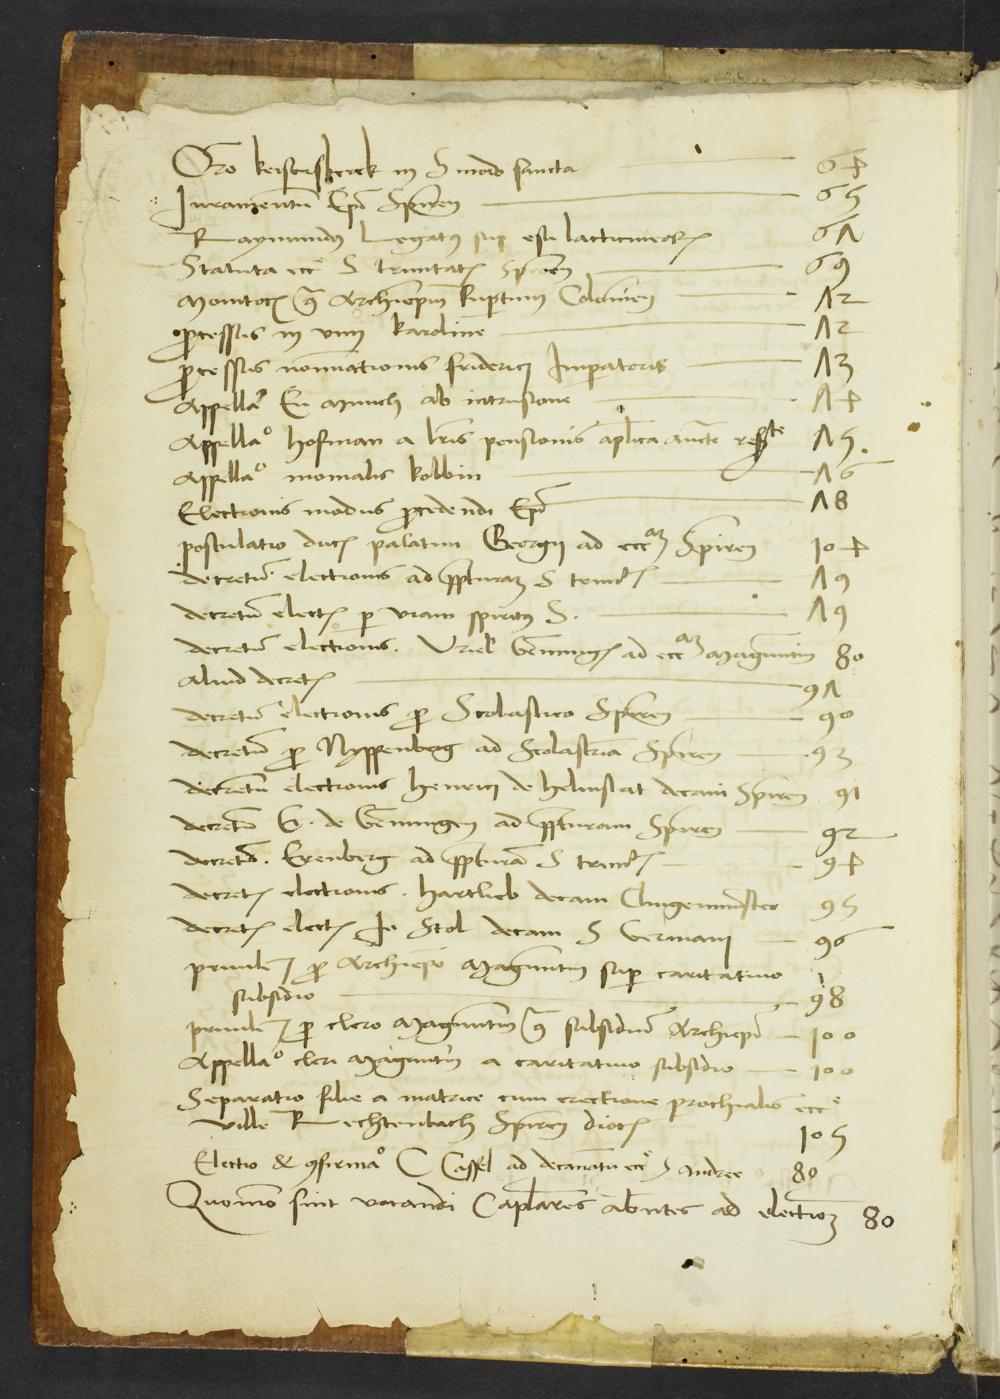 Oro keisersberck in Sinodo sancta 64
Juramentū Epī Spiren 65
Raymundꝰ Legatꝰ sup esu lacticinioꝝ 67
Statuta ecce S trinitatꝭ Spiren 69
Monitorꝭ 9ͣ Archiepm̄ Rupertum Colonien 72
ꝓcessus in vim karoline 72
ꝓcessus nominationis friderici Imperatoris 73
Appellaᵒ En Munch ab intrusione 74
Appellaᵒ hofman a lrīs pensionis aplīca auctē 75
Appellaᵒ monialis kolbin 76
Electionis modus ꝓcedendi Epī 78
postulatio ducꝭ palatini Georgij ad eccᵃᵐ Spiren 104
decretū electionis ad p̄pturaꝫ S trinitꝭ 79
decretū electꝭ ꝑ viam spiritꝰ S. 79
decretū electionis. Uriel Gēmingꝭ ad eccᵃᵐ Maguntin 80
Aliud decretꝭ 97
decretū electionis ꝓ Scolastico Spiren 90
decretū ꝓ Nyppenberg ad Scolastria Spiren 93
decretū electionis henrici de helmstat decani Spiren 91
decretū G. de Gēmingen ad p̄pturam Spiren 92
decretū. Erenberg ad p̄pturā S trinitꝭ 94
decretꝭ electionis. hartlieb decani Clingenmūster 95
decretꝭ electꝭ Jo Stol decani S Germani 96
priuileꝫ ꝓ Archiepo Maguntin sup caritatiuo
subsidio 98
priuileꝫ ꝓ clero Maguntin 9ͣ subsidiū Archiepī 100
Appellaᵒ cleri Maguntin a caritatiuo subsidio 100
Separatio filie a matrice cum erectione prochialis ecce
ville Rechtenbach Spiren diocꝭ 105
Electio & ꝯfirmaᵒ C Cassel ad decanatū ecce S Andree 80
Quomō sint vocandi Caplāres abn̄tes ad electionꝫ 80